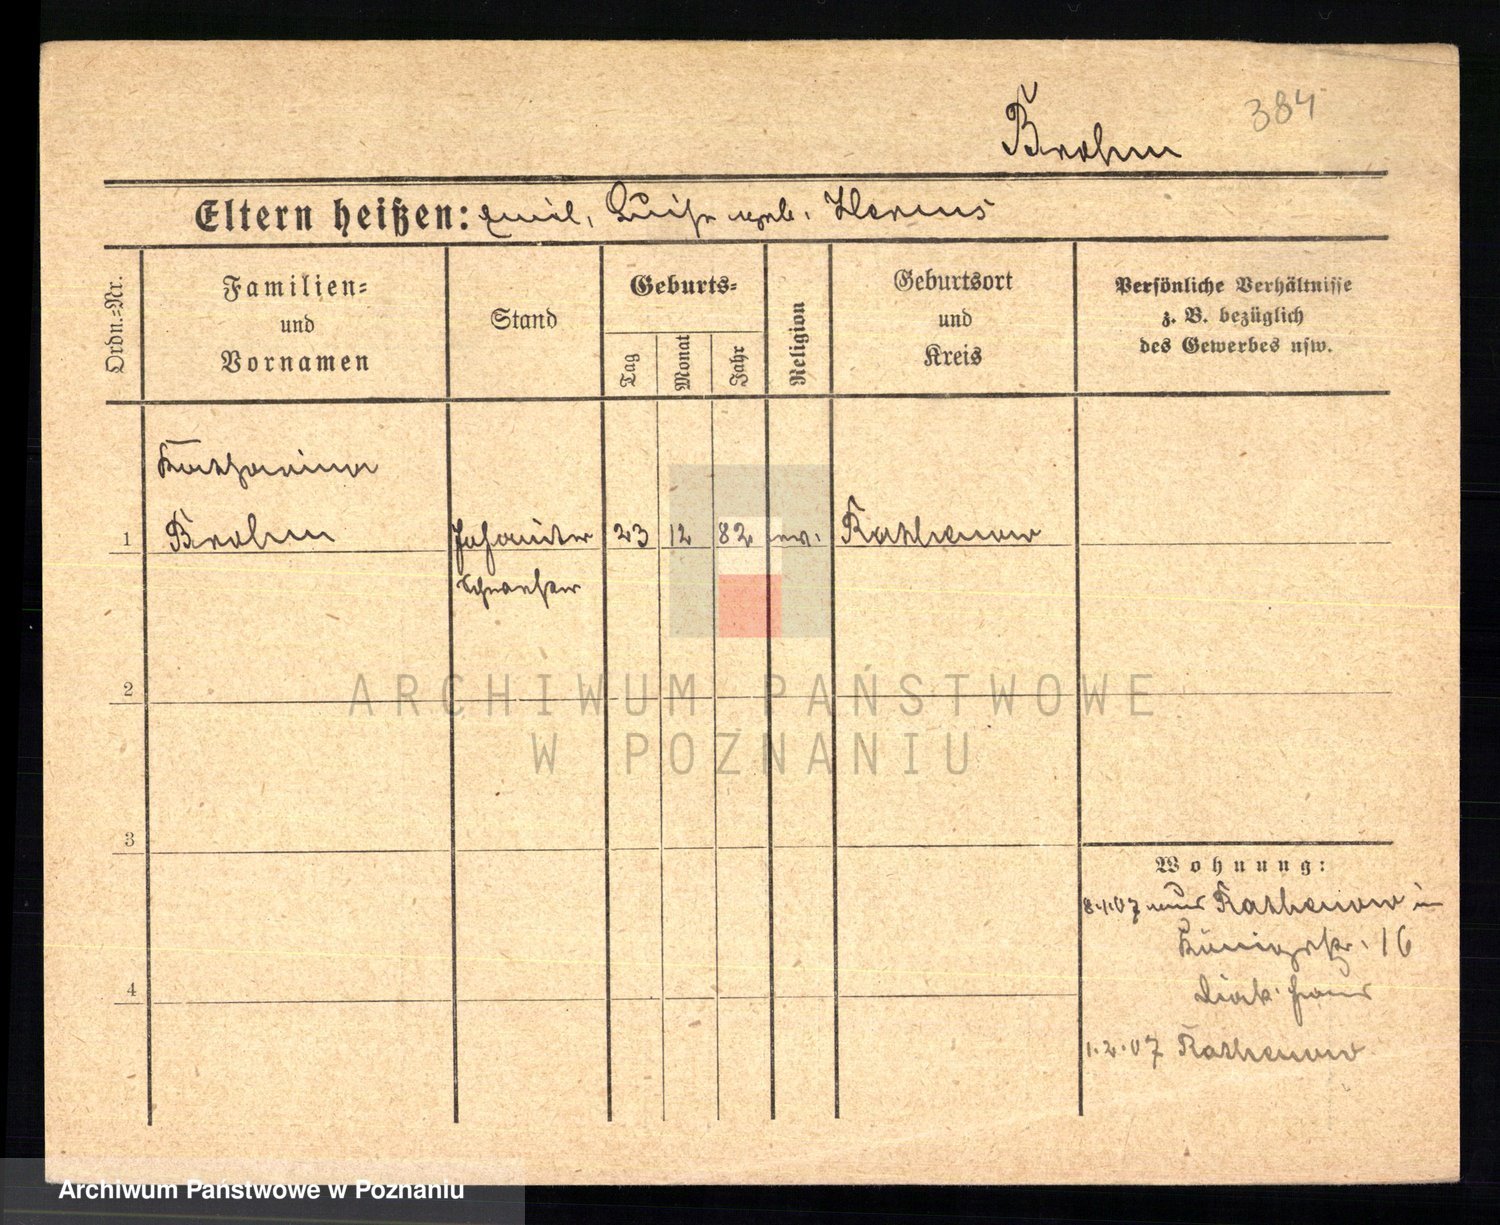 384
Brohm
Eltern heißen: Emil, Luise geb. Harms
Ordn.-Nr.
Familien-
und
Vornamen
Stand
Geburts-
Tag
Monat
Jahr
Religion
Geburtsort
und
Kreis
Persönliche Verhältnisse
z. B. bezüglich
des Gewerbes usw.
Katharina
1 Brohm Johanniter 23 12 82 ev. Rathenow
Schwester
2
3
4
Wohnung:
8.1.07 aus Rathenow in
Königstr. 16
Diak. haus
1.2.07 Rathenow
ARCHIWUM PAŃSTWOWE
W POZNANIU
Archiwum Państwowe w Poznaniu